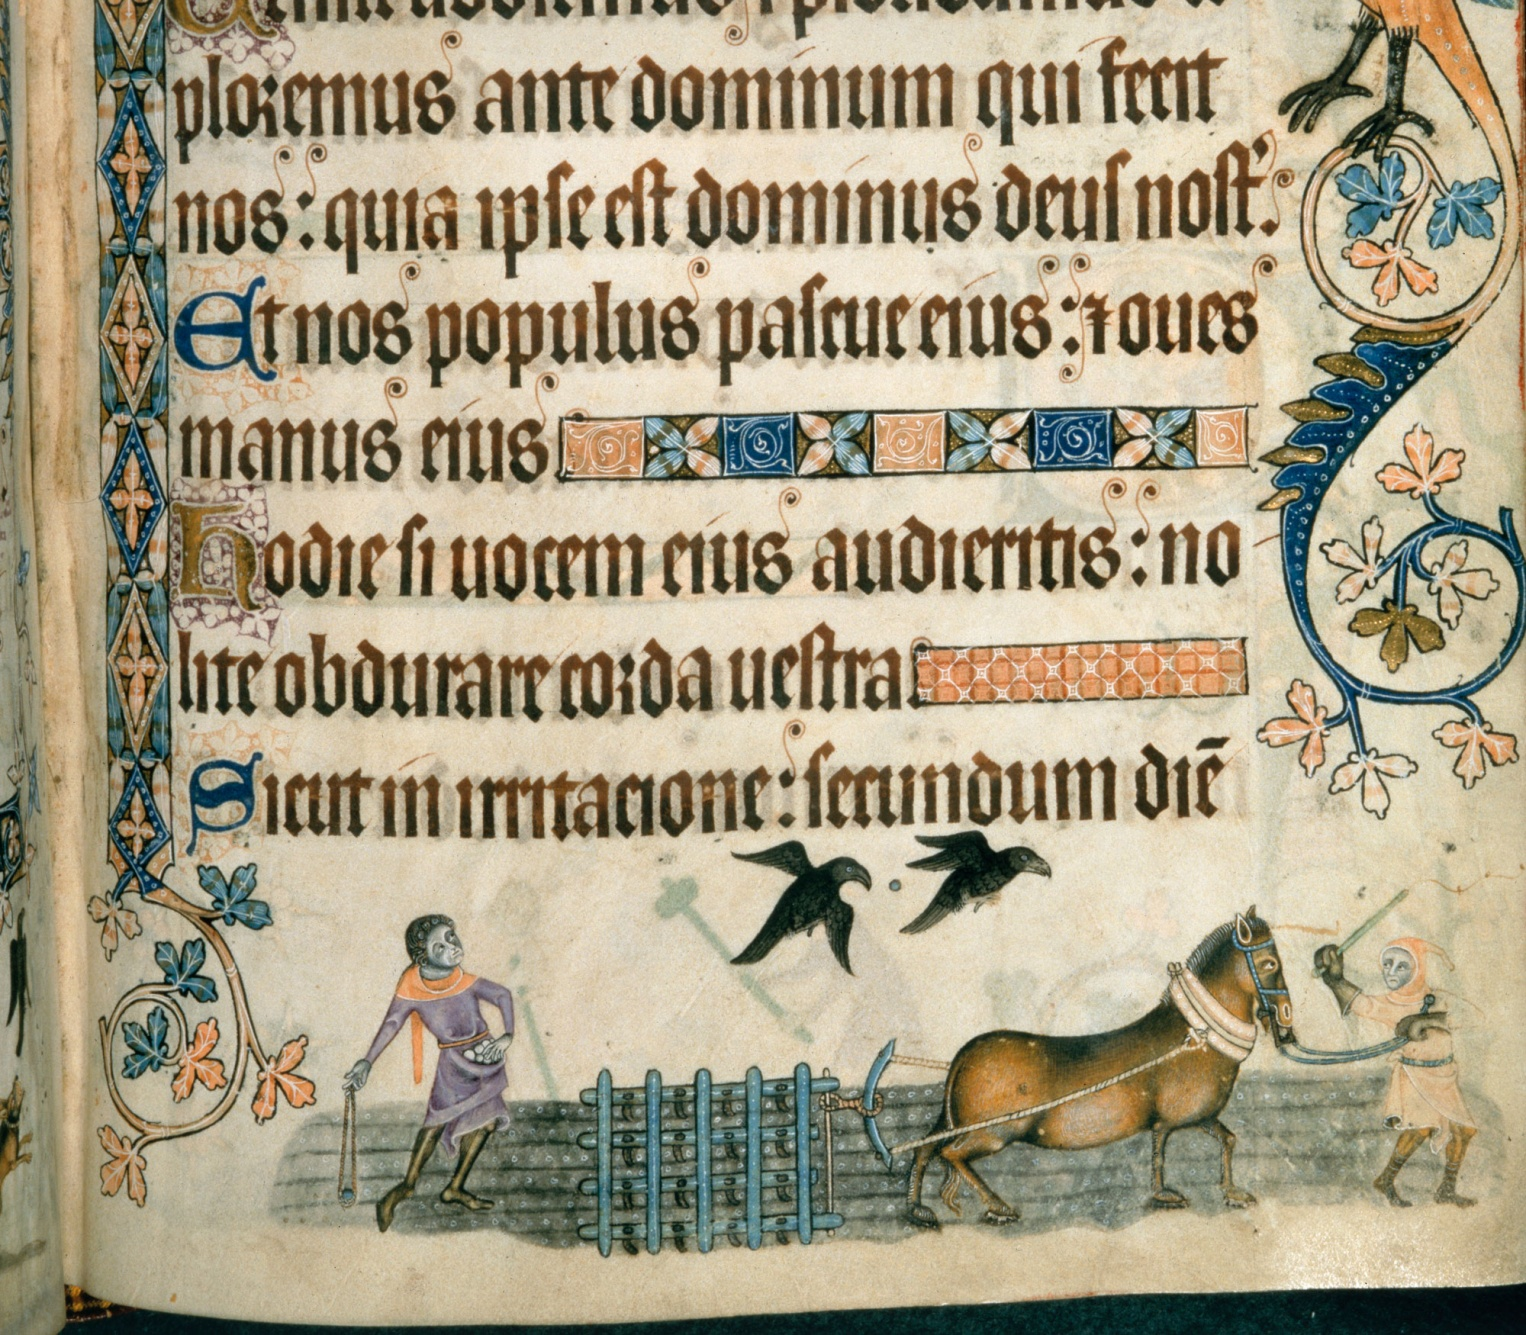 ploremus ante dominum qui fecit
nos: quia ipse est dominus deus nost'.
Et nos populus pascue eius: ⁊ oues
manus eius
Hodie si uocem eius audieritis: no
lite obdurare corda uestra
Sicut in irritacione: secundum diē